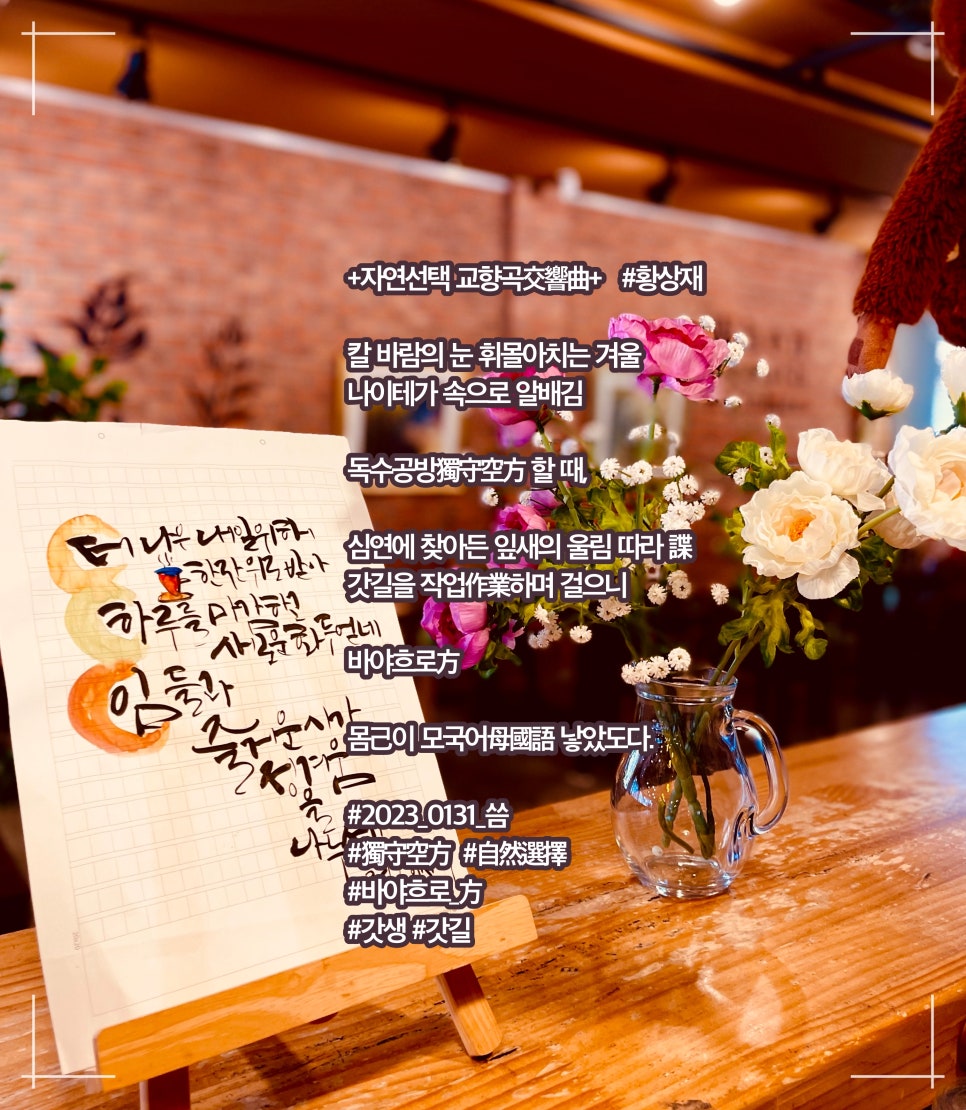 +자연선택 교향곡交響曲+ #황상재
칼 바람의 눈 휘몰아치는 겨울
나이테가 속으로 알배김
독수공방獨守空方 할 때,
심연에 찾아든 잎새의 울림 따라 諜
갓길을 작업作業하며 걸으니
바야흐로方
몸己이 모국어母國語 낳았도다.
#2023_0131_씀
#獨守空方 #自然選擇
#바야흐로_方
#갓생 #갓길
더 나은 내일 위하여
한잔 위로 받아
하루를 마감하면
사로운
임들과
즐거운 시간
정겨움을